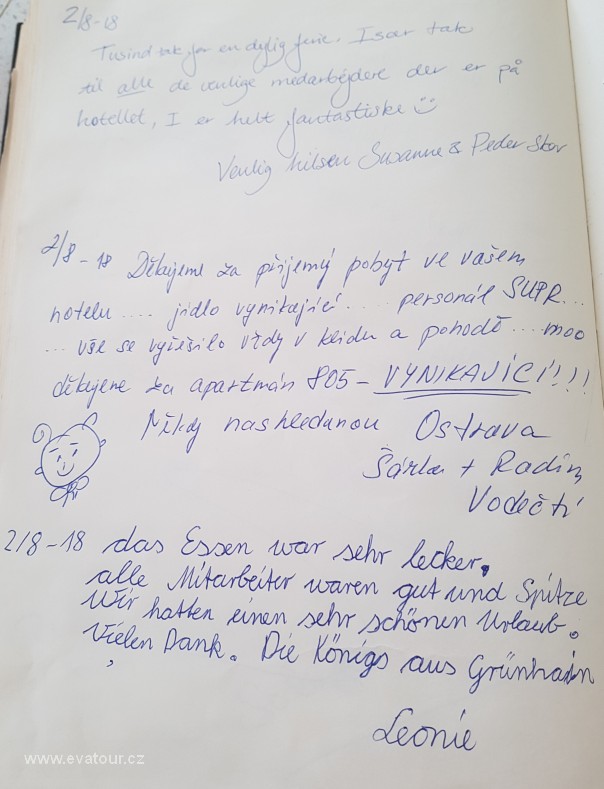 2/8-18
Tusind tak for en dejlig ferie. Især tak
til alle de venlige medarbejdere der er på
hotellet, I er helt fantastiske
Venlig hilsen Susanne & Peder Skov
2/8-18 Děkujeme za příjemný pobyt ve vašem
hotelu .... jídlo vynikající .... personál SUPR...
... vše se vyřešilo vždy v klidu a pohodě .... moc
děkujeme za apartmán 805 - VYNIKAJÍCÍ!!!
Někdy nashledanou Ostrava
Šárka + Radim
Vodečtí
2/8-18 das Essen war sehr lecker.
alle Mitarbeiter waren gut und Spitze
Wir hatten einen sehr schönen Urlaub.
Vielen Dank. Die Königs aus Grünhain
Leonie
www.evatour.cz